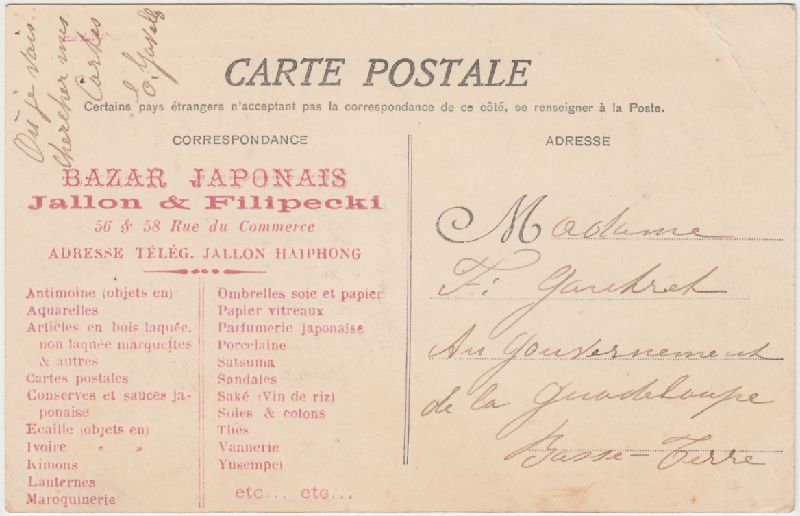 Où je vais
chercher mes
Cartes
CARTE POSTALE
Certains pays étrangers n'acceptant pas la correspondance de ce côté, se renseigner à la Poste.
CORRESPONDANCE
BAZAR JAPONAIS
Jallon & Filipecki
56 & 58 Rue du Commerce
ADRESSE TÉLÉG. JALLON HAIPHONG
Antimoine (objets en)
Aquarelles
Articles en bois laqués,
non laqués marquettes
& autres
Cartes postales
Conserves et sauces ja-
ponaise
Ecaille (objets en)
Ivoire " "
Kimons
Lanternes
Maroquinerie
Ombrelles soie et papier
Papier vitreaux
Parfumerie japonaise
Porcelaine
Satsuma
Sandales
Saké (Vin de riz)
Soies & cotons
Thés
Vannerie
Yusempei
etc... etc...
ADRESSE
Madame
F.
Au Gouvernement
de la Guadeloupe
Basse-Terre